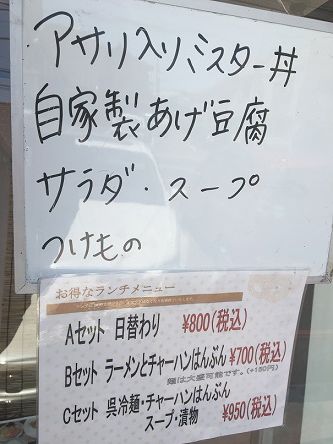 アサリ入りミスター丼
自家製あげ豆腐
サラダ・スープ
つけもの
お得なランチメニュー
Aセット 日替わり ¥800(税込)
Bセット ラーメンとチャーハンはんぶん ¥700(税込)
麺は大盛可能です。(+150円)
Cセット 呉冷麺・チャーハンはんぶん
スープ・漬物 ¥950(税込)